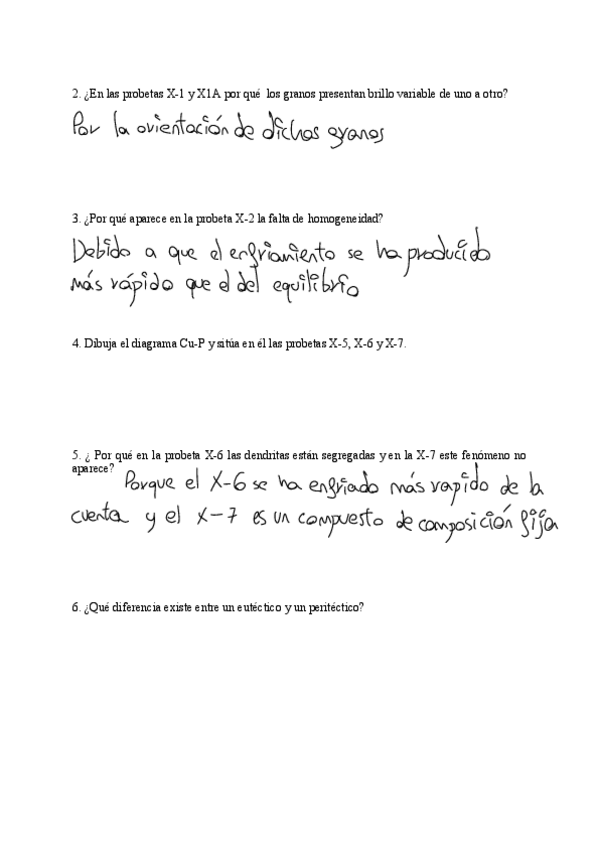 2. ¿En las probetas X-1 y X1A por qué los granos presentan brillo variable de uno a otro?
Por la orientación de dichos granos
3. ¿Por qué aparece en la probeta X-2 la falta de homogeneidad?
Debido a que el enfriamiento se ha producido
más rápido que el del equilibrio
4. Dibuja el diagrama Cu-P y sitúa en él las probetas X-5, X-6 y X-7.
5. ¿ Por qué en la probeta X-6 las dendritas están segregadas y en la X-7 este fenómeno no
aparece?
Porque el X-6 se ha enfriado más rapido de la
cuenta y el X-7 es un compuesto de composición fija
6. ¿Qué diferencia existe entre un eutéctico y un peritéctico?